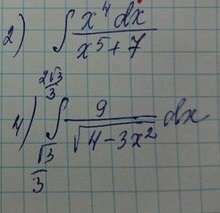 2) ∫ x⁴ dx / x⁵ + 7
4) ∫_{√3/3}^{2√3/3} 9 / √(4 - 3x²) dx